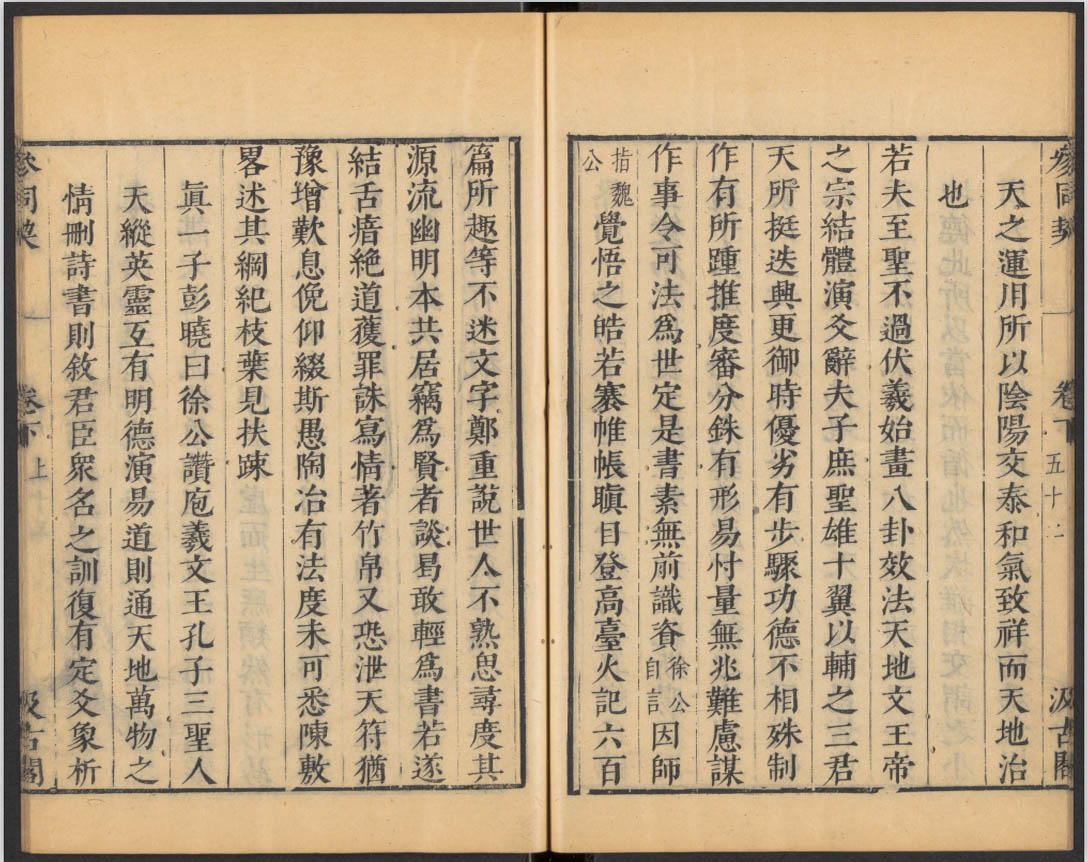 參同契 卷下 五十二 汲古閣
天之運用所以陰陽交泰和氣致祥而天地治
也
若夫至聖不過伏羲始畫八卦效法天地文王帝
之宗結體演爻辭夫子庶聖雄十翼以輔之三君
天所挺迭興更御時優劣有步驟功德不相殊制
作有所踵推度審分銖有形易忖量無兆難慮謀
作事令可法為世定是書素無前識資徐公自言因師
指魏公覺悟之皓若褰帷帳瞋目登高臺火記六百
篇所趣等不迷文字鄭重說世人不熟思尋度其
源流幽明本共居竊為賢者談曷敢輕為書若遂
結舌瘖絶道獲罪誅寫情著竹帛又恐泄天符猶
豫增歎息俛仰綴斯愚陶冶有法度未可悉陳敷
畧述其綱紀枝葉見扶疎
眞一子彭曉曰徐公讚庖羲文王孔子三聖人
天縱英靈互有明德演易道則通天地萬物之
情刪詩書則敘君臣衆名之訓復有定爻象析
參同契 卷下 上 汲古閣